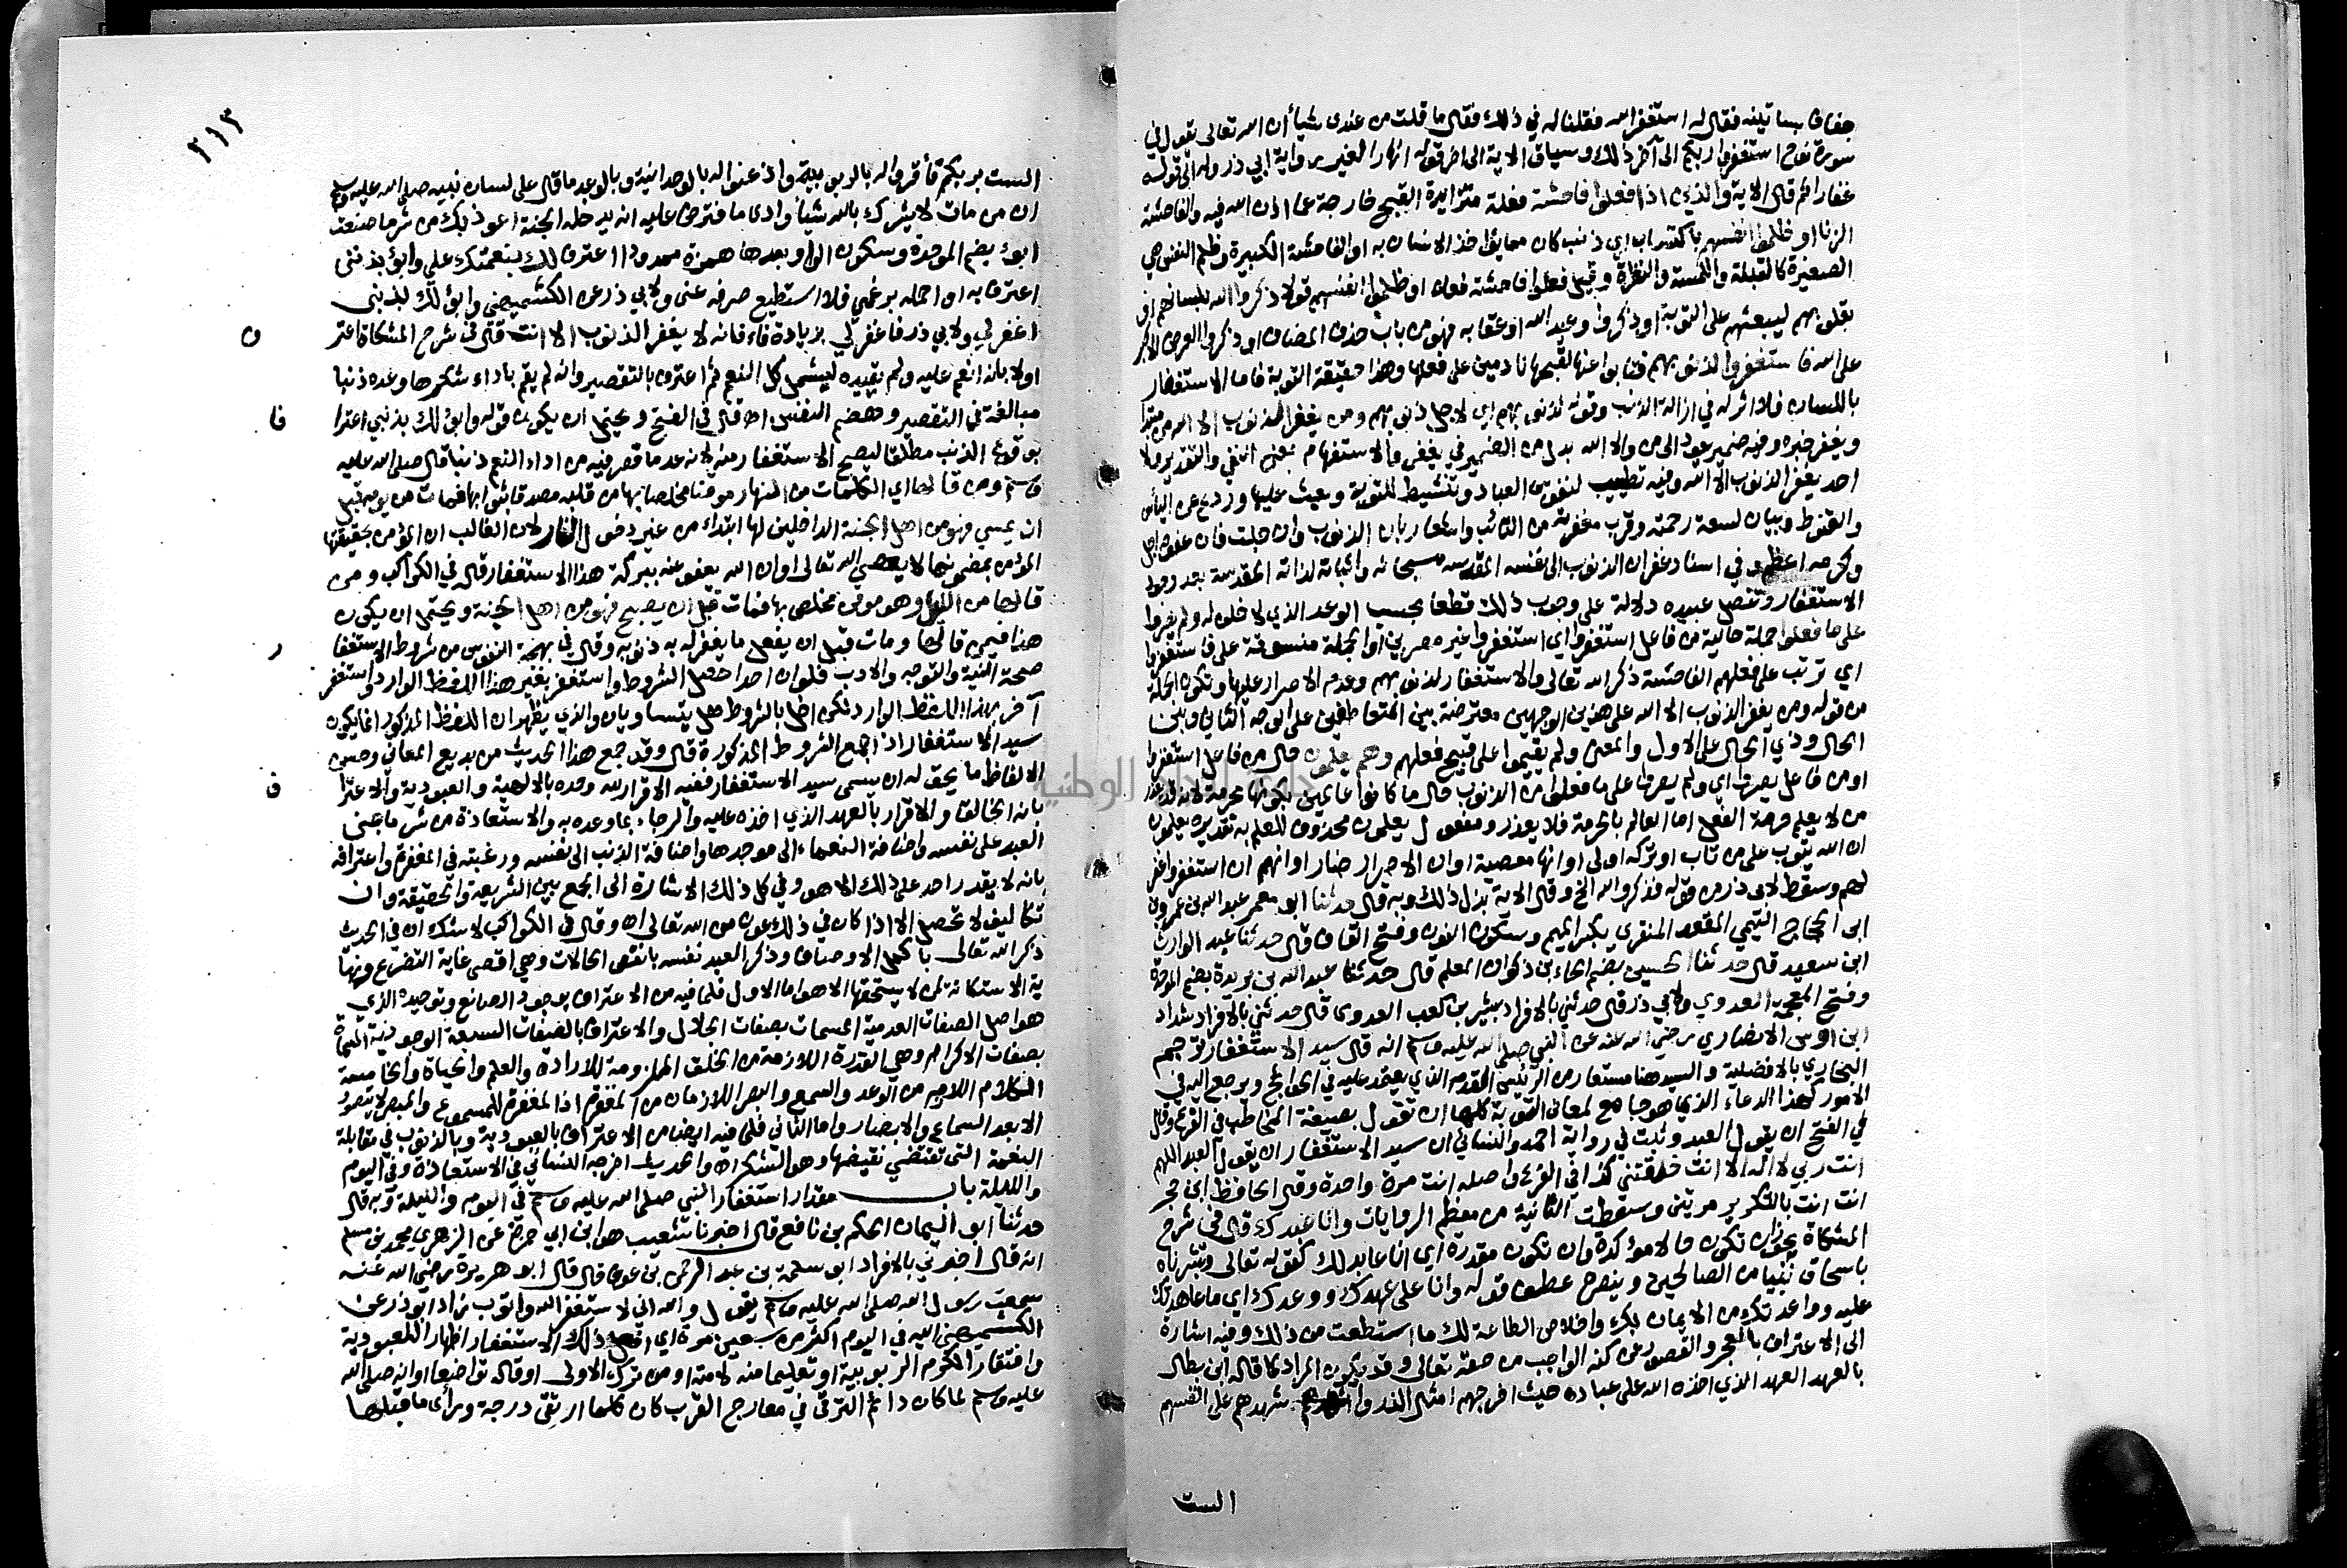 جفاف بساتينه فقال له استغفر الله فقلنا له في ذلك فقال ما قلت من عندى شيأ ان الله تعالى يقول في
سورة نوح استغفروا ربكم الى آخر ذلك وسياق الاية الى اخر قوله انهارا لغير رواية ابي ذر وله الى قوله
غفارا ثم قال الاية والذين اذا فعلوا فاحشة فعلة متزايدة القبح خارجة عما اذن الله فيه والفاحشة
الزنا او ظلموا انفسهم باكتساب اي ذنب كان مما يؤاخذ الانسان به او الفاحشة الكبيرة وظلم النفس هي
الصغيرة كالقبلة واللمسة والنظرة وقيل فعلوا فاحشة فعلا او ظلموا انفسهم قولا ذكروا الله بلسانهم او
بقلوبهم ليبعثهم على التوبة او ذكروا وعيد الله او عقابه فهو من باب حذف المضاف او ذكروا العرض الاكبر
على الله فاستغفروا لذنوبهم فتابوا عنها لقبحها نادمين على فعلها وهذا حقيقة التوبة فاما الاستغفار
باللسان فلا اثر له في ازالة الذنب وقوله لذنوبهم اي لاجل ذنوبهم ومن يغفر الذنوب الا الله من مبتدا
ويغفر خبره وفيه ضمير يعود الى من والا الله بدل من الضمير في يغفر والاستفهام بمعنى النفي والتقدير ولا
احد يغفر الذنوب الا الله وفيه تطييب لنفوس العباد وتنشيط للتوبة وبعث عليها وردع عن اليأس
والقنوط وبيان لسعة رحمته وقرب مغفرته من التائب واشعار بان الذنوب وان جلت فان عفوه اجل
وكرمه اعظم وفي اسناد غفران الذنوب الى نفسه المقدسه سبحانه واثباته لذاته المقدسة بعد وجود
الاستغفار وتنصل عبيده دلالة على وجوب ذلك قطعا بحسب الوعد الذي لا خلف له ولم يصروا
على ما فعلوا جملة حالية من فاعل استغفروا اي استغفروا غير مصرين او الجملة منسوقة على فاستغفروا
اي ترتب على فعلهم الفاحشة ذكر الله تعالى والاستغفار لذنوبهم وعدم الاصرار عليها وتكون الجملة
من قوله ومن يغفر الذنوب الا الله على هذين الوجهين معترضة بين المتعاطفين على الوجه الثاني وبين
الحال وذي الحال على الاول والمعنى ولم يقيموا على قبيح فعلهم وهم يعلمون حال من فاعل استغفروا
او من فاعل يصروا اي ولم يصروا على ما فعلوا من الذنوب حال ما كانوا عالمين بكونها محرمة لانه قد يعذر
من لا يعلم حرمة الفعل اما العالم بالحرمة فلا يعذر ومفعول يعلمون محذوف للعلم به تقديره يعلمون
ان الله يتوب على من تاب او تركه اولى او انها معصية او ان الاصرار ضار او انهم ان استغفروا غفر
لهم وسقط لابي ذر من قوله فذكروا الله الخ وقال الاية بدل ذلك وبه قال حدثنا ابو معمر عبد الله بن عمرو بن
ابى الحجاج التيمي المقعد المنقري بكسر الميم وسكون النون وفتح القاف قال حدثنا عبد الوارث
ابن سعيد قال حدثنا الحسين بضم الحاء بن ذكوان المعلم قال حدثنا عبد الله بن بريدة بضم الموحدة
وفتح المعجمة العدوي ولابي ذر قال حدثني بالافراد بشير بن كعب العدوى قال حدثني بالافراد شداد
ابن اوس الانصاري رضي الله عنه عن النبي صلى الله عليه وسلم انه قال سيد الاستغفار ترجم
البخاري بالافضلية والسيد هنا مستعار من الرئيس المقدم الذي يعتمد عليه في الحوائج ويرجع اليه في
الامور لهذا الدعاء الذي هو جامع لمعاني التوبة كلها ان تقول بصيغة المخاطب في الفرع وقال
في الفتح ان يقول العبد وثبت في رواية احمد والنسائي ان سيد الاستغفار ان يقول العبد اللهم
انت ربي لا اله الا انت خلقتني كذا في الفرع واصله انت مرة واحدة وقال الحافظ ابن حجر
انت انت بالتكرير مرتين وسقطت الثانية من معظم الروايات وانا عبدك قال في شرح
المشكاة يجوز ان تكون حالا مؤكدة وان تكون مقدرة اي انا عابد لك كقوله تعالى وبشرناه
باسحاق نبيا من الصالحين وينصره عطف قوله وانا على عهدك ووعدك اي ما عاهدتك
عليه وواعدتك من الايمان بك واخلاص الطاعة لك ما استطعت من ذلك وفيه اشارة
الى الاعتراف بالعجز والقصور عن كنه الواجب من حقه تعالى وقد يكون المراد كما قاله ابن بطال
بالعهد العهد الذي اخذه الله على عباده حيث اخرجهم امثال الذر واشهدهم على انفسهم
الست
٢١٣
الست بربكم فأقروا له بالربوبية واذعنوا له بالوحدانية وبالوعد ما قال على لسان نبيه صلى الله عليه وسلم
ان من مات لا يشرك بالله شيأ وادى ما فترض عليه انه يدخله الجنة اعوذ بك من شر ما صنعت
ابوء بضم الموحدة وسكون الواو بعدها همزة ممدودا اعترف لك بنعمتك علي وابوء بذنبى
اعترف به او احمله برغمي فلا استطيع صرفه عنى ولابي ذر عن الكشميهني وابوء لك بذنبى
اغفر لي ولابي ذر فاغفر لي بزيادة فاء فانه لا يغفر الذنوب الا انت قال في شرح المشكاة اعتر
ف
اولا بانه انعم عليه ولم يقيده ليشمل كل النعم ثم اعترف بالتقصير وانه لم يقم باداء شكرها وعده ذنبا
مبالغة في التقصير وهضم النفس اه قال في الفتح ويحتمل ان يكون قوله وابوء لك بذنبي اعترا
فا
بوقوع الذنب مطلقا ليصح الاستغفار منه لا انه عد ما قصر فيه من اداء النعم ذنبا قال صلى الله عليه
وسلم ومن قالها اي الكلمات من النهار موقنا مخلصا بها من قلبه مصدقا بثوابها فمات من يومه قبل
ان يمسي فهو من اهل الجنة الداخلين لها ابتداء من غير دخول النار لان الغالب ان المؤمن بحقيقتها
المؤمن بمضمونها لا يعصي الله تعالى او ان الله يعفو عنه ببركة هذا الاستغفار قال في الكواكب ومن
قالها من الليل وهو موقن مخلص بها فمات قبل ان يصبح فهو من اهل الجنة ويحتمل ان يكون
هذا فيمن قالها ومات قبل ان يفعل ما يغفر له به ذنوبه وقال في بهجة النفوس من شروط الاستغفا
ر
صحة النية والتوجه والادب فلو ان احدا حصل الشروط واستغفر بغير هذا اللفظ الوارد واستغفر
آخر بهذا اللفظ الوارد لكن اخل بالشروط هل يتساويان والذي يظهر ان اللفظ المذكور انما يكون
سيد الاستغفار اذا جمع الشروط المذكورة قال وقد جمع هذا الحديث من بديع المعاني وحسن
الالفاظ ما يحق له ان يسمى سيد الاستغفار ففيه الاقرار لله وحده بالالهية والعبودية والاعترا
ف
بانه الخالق والاقرار بالعهد الذي اخذه عليه والرجاء بما وعده به والاستعاذة من شر ما جنى
العبد على نفسه واضافة النعماء الى موجدها واضافة الذنب الى نفسه ورغبته في المغفرة واعترافه
بانه لا يقدر احد على ذلك الا هو وفي كل ذلك الاشارة الى الجمع بين الشريعة والحقيقة وان
تكاليف لا تحصل الا اذا كان في ذلك عون من الله تعالى اه وقال في الكواكب لا شك ان في الحديث
ذكر الله تعالى باكمل الاوصاف وذكر العبد نفسه بانقص الحالات وهي اقصى غاية التضرع ونها
ية الاستكانة لمن لا يستحقها الا هو اما الاول فلما فيه من الاعتراف بوجود الصانع وتوحيده الذي
هو اصل الصفات العدمية المسمات بصفات الجلال والاعتراف بالصفات السبعة الوجودية المسماة
بصفات الاكرام وهي القدرة اللازمة من الخلق الملزومة للارادة والعلم والحياة والخامسة
الكلام اللازم من الوعد والسمع والبصر اللازمان من المغفرة اذ المغفرة للمسموع والمبصر لا يتصور
الا بعد السماع والابصار واما الثاني فلما فيه ايضا من الاعتراف بالعبودية وبالذنوب في مقابلة
النعمة التي تقتضي نقيضها وهو الشكر اه والحديث اخرجه النسائي في الاستعاذة وفي اليوم
والليلة باب مقدار استغفار النبي صلى الله عليه وسلم في اليوم والليلة وبه قال
حدثنا ابو اليمان الحكم بن نافع قال اخبرنا شعيب هو ابن ابي حمزة عن الزهري محمد بن مسلم
انه قال اخبرني بالافراد ابو سلمة بن عبد الرحمن بن عوف قال قال ابو هريرة رضي الله عنه
سمعت رسول الله صلى الله عليه وسلم يقول والله اني لاستغفر الله واتوب زاد ابو ذر عن
الكشميهني اليه في اليوم اكثر من سبعين مرة اي افعل ذلك الاستغفار اظهارا للعبودية
وافتقارا لكرم الربوبية او تعليما منه لامته او من ترك الاولى او قاله تواضعا او انه صلى الله
عليه وسلم لما كان دائم الترقي في معارج القرب كان كلما ارتقى درجة وراى ما قبلها